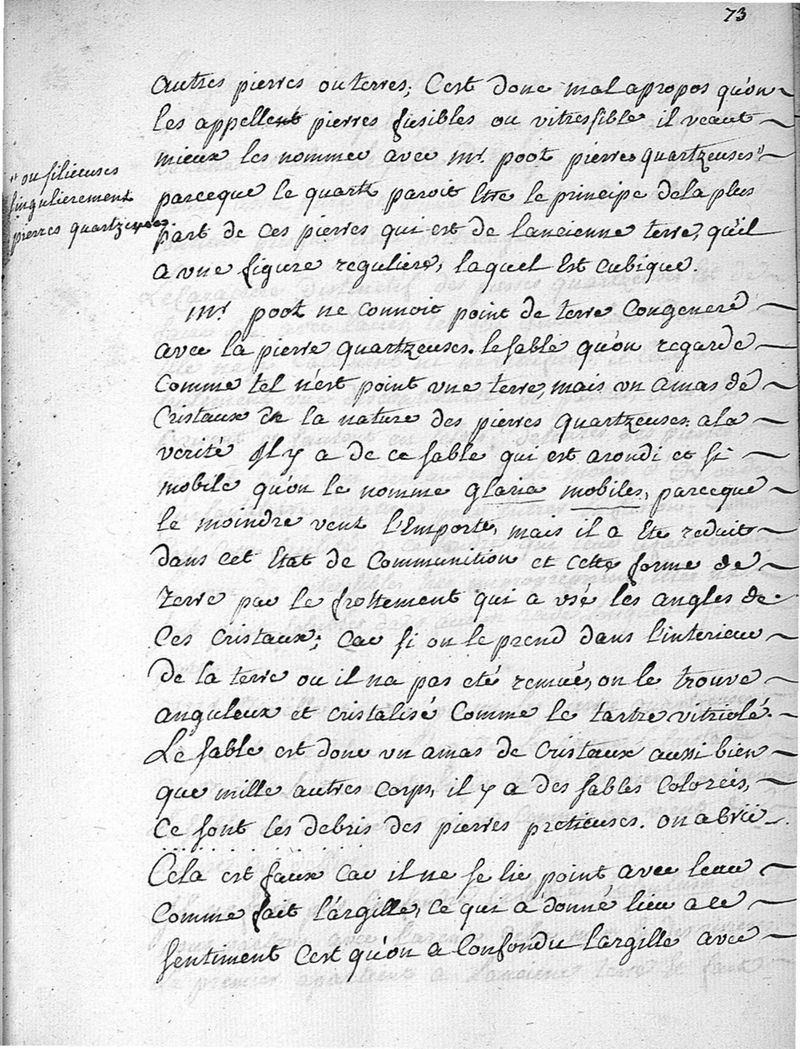 73
autres pierres ou terres; C'est donc mal apropos qu'on
les appellent pierres fusibles ou vitresfible il veaut
mieux les nommer avec mr. poot pierres quartzeuses"
"ou silieuses
singulierement
pierres quartzeuses.
parceque le quartz paroit Etre le principe de la plus
part de ces pierres qui est de lancienne terre, qu'il
a une figure reguliere, laquel Est cubique.
Mr. poot ne connoit point de terre Congeneré
avec la pierre quartzeuses. le sable qu'on regarde
Comme tel n'est point une terre, mais un amas de
Cristaux de la nature des pierres quartzeuses. a la
verité Il y a de ce sable qui est arondi et si
mobile qu'on le nomme glaria mobiles, parceque
le moindre vent l'Emporte, mais il a Eté reduit
dans cet Etat de Communition et cette forme de
terre par le frottement qui a usé les angles de
Ces cristaux; Car si on le prend dans l'interieur
de la terre ou il na pas eté remué, on le trouve
anguleux et cristalisé Comme le tartre vitriolé.
Le sable est donc un amas de Cristaux aussi bien
que mille autres Corps, il y a des sables Colorés,
Ce sont les debris des pierres pretieuses. on a
Cela est faux Car il ne se lie point avec leau
Comme fait l'argille, ce qui a donné lieu a ce
sentiment C'est qu'on a Confondu l'argille avec